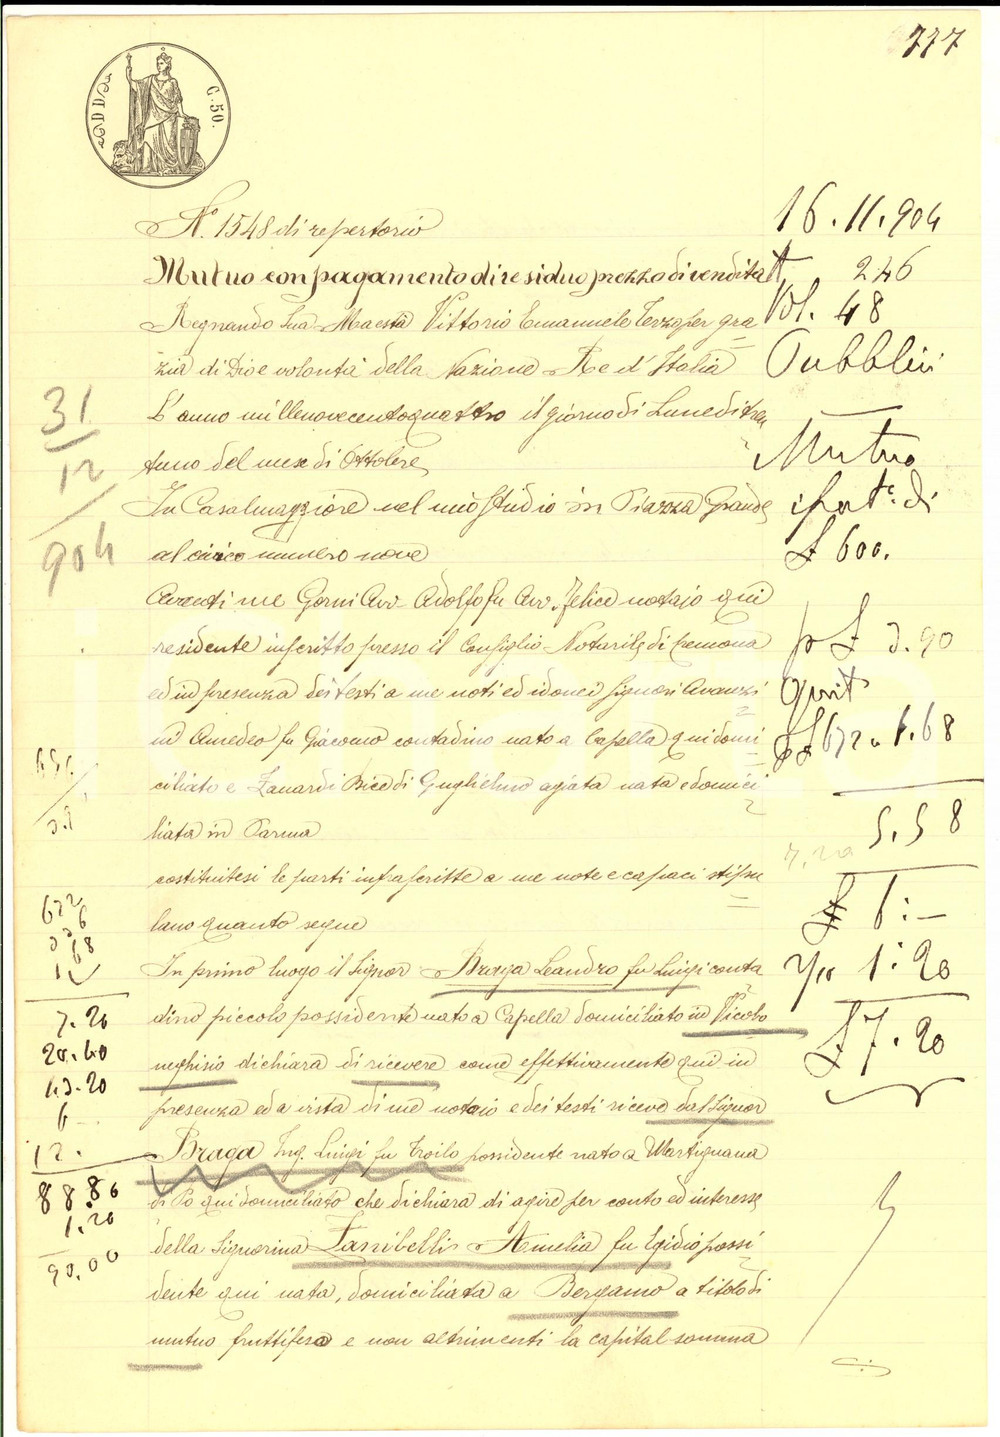 777
C. 50.
N. 1548 di repertorio
Mutuo con pagamento di residuo prezzo di vendita
Regnando Sua Maestà Vittorio Emanuele Terzo per gra
zia di Dio e volontà della Nazione Re d'Italia
L'anno millenovecentoquattro il giorno di Lunedi tren
tuno del mese di Ottobre
In Casalmaggiore nel mio Studio in Piazza Grande
al civico numero nove
Avanti me Gorni Avv. Adolfo fu Avv. Felice notajo qui
residente inscritto presso il Consiglio Notarile di Cremona
ed in presenza dei testi a me noti ed idonei signori Avanzi
ni Amedeo fu Giacomo contadino nato a Capella qui domi
ciliato e Zanardi Bice di Guglielmo agiata nata e domici
liata in Parma
costituitesi le parti infrascritte a me note e capaci stipu
lano quanto segue
In primo luogo il Signor Braga Leandro fu Luigi conta
dino piccolo possidente nato a Capella domiciliato in Vicobo
neghisio dichiara di ricevere come effettivamente qui in
presenza ed a vista di me notaio e dei testi riceve dal Signor
Braga Ing. Luigi fu Troilo possidente nato a Martignana
di Po qui domiciliato che dichiara di agire per conto ed interesse
della Signorina Zanibelli Amelia fu Egidio possi
dente qui nata, domiciliata a Bergamo a titolo di
mutuo fruttifero e non altrimenti la capital somma
16.11.904
246
Vol. 48
Pubblici
Mutuo
di
£ 600.
£ 3.90
Quit
672 1.68
5.58
7.20
£ 1:-
1:20
£ 7.20
31
12
904
672
336
1.68
7.20
20.40
43.20
6
12.
88.80
1.20
90.00